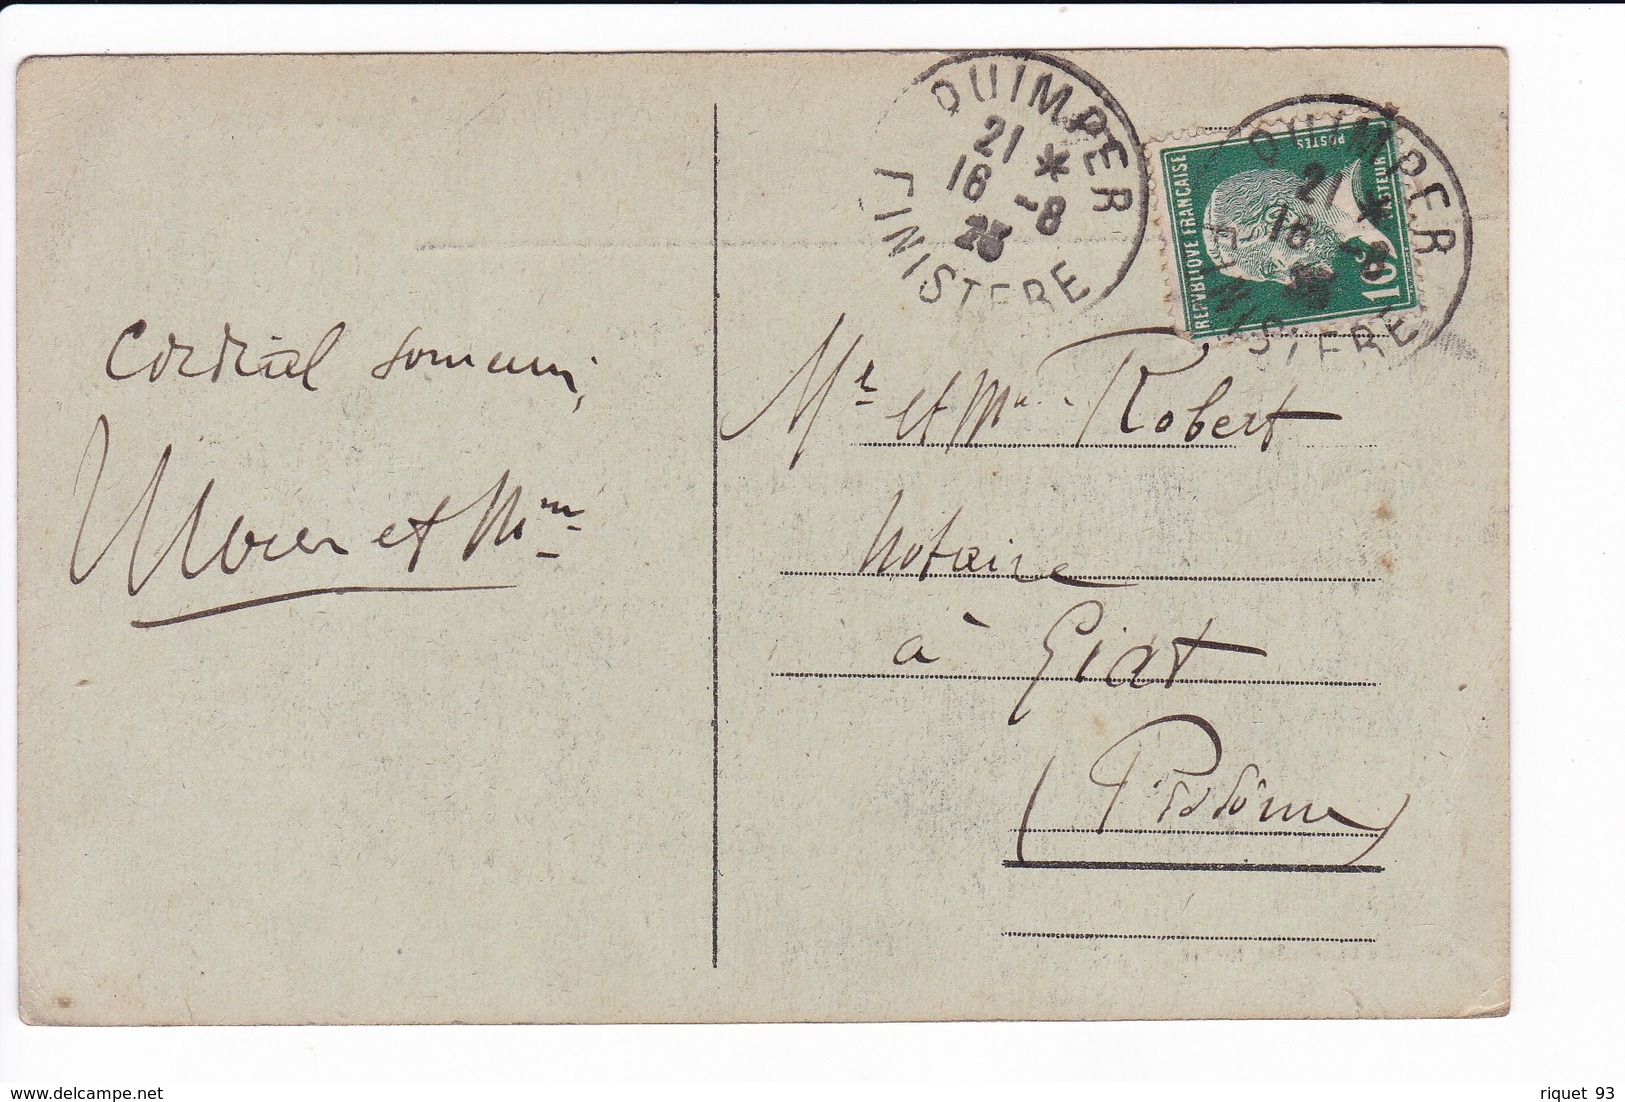 QUIMPER
21 *
16 -8
25
FINISTERE
QUIMPER
21 *
16 -8
FINISTERE
REPVBLIQVE FRANCAISE
POSTES
PASTEUR
10c
Cordial
et Mme
Mr et Mme Robert
Notaire
à Giat
(P. de dôme)
www.delcampe.net
riquet 93